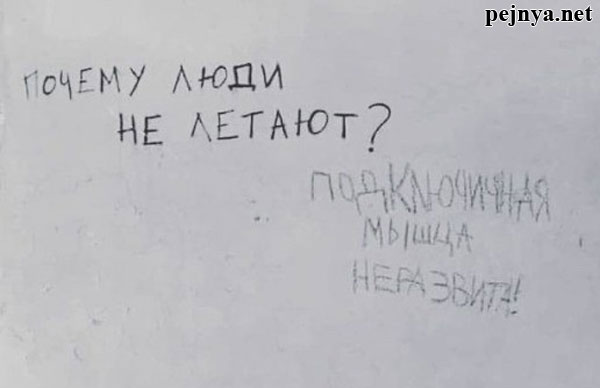 pejnya.net
ПОЧЕМУ ЛЮДИ
НЕ ЛЕТАЮТ?
ПОДКЛЮЧИЧНАЯ
МЫШЦА
НЕРАЗВИТА!